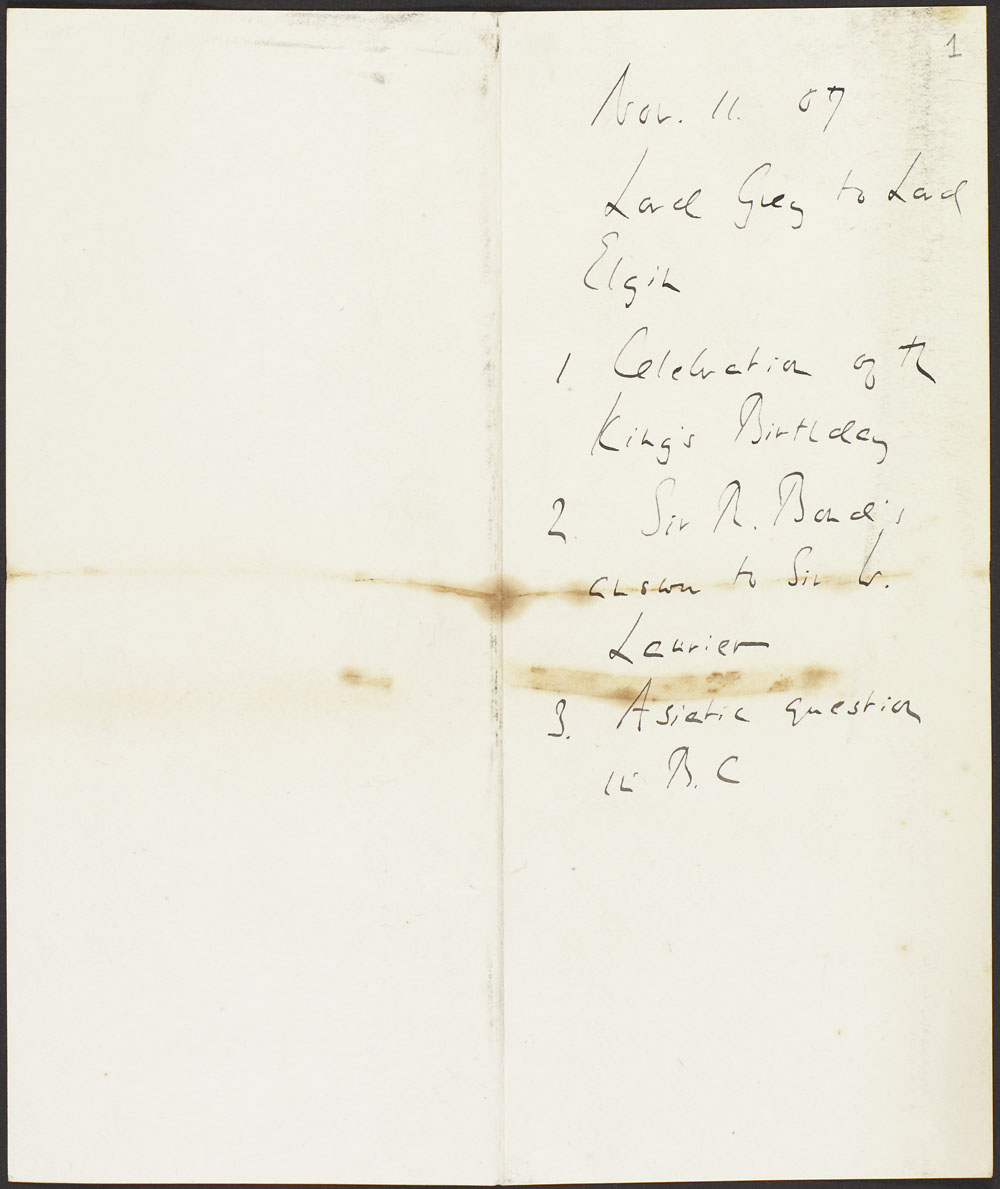 1
Nov. 11. 07
Lord Grey to Lord
Elgin
1 Celebration of th
King's Birthday
2. Sir R. Bond's
answer to Sir W.
Laurier
3. Asiatic question
in B. C